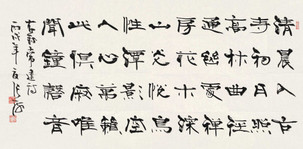 清晨入古
寺初日照
高林曲徑
通幽處禪
房花木深
山光悦鳥
性潭影空
人心萬籟
此俱寂唯
聞鐘磬音
常建詩
丙戌年